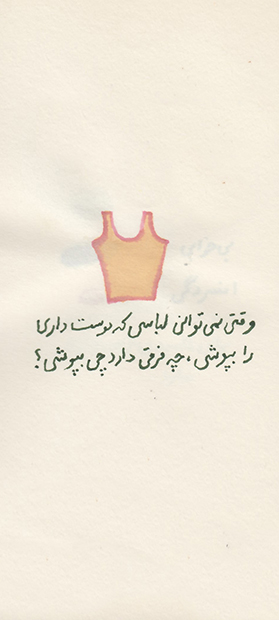 وقتی نمی توانی لباسی که دوست داری
را بپوشی، چه فرقی دارد چی بپوشی؟